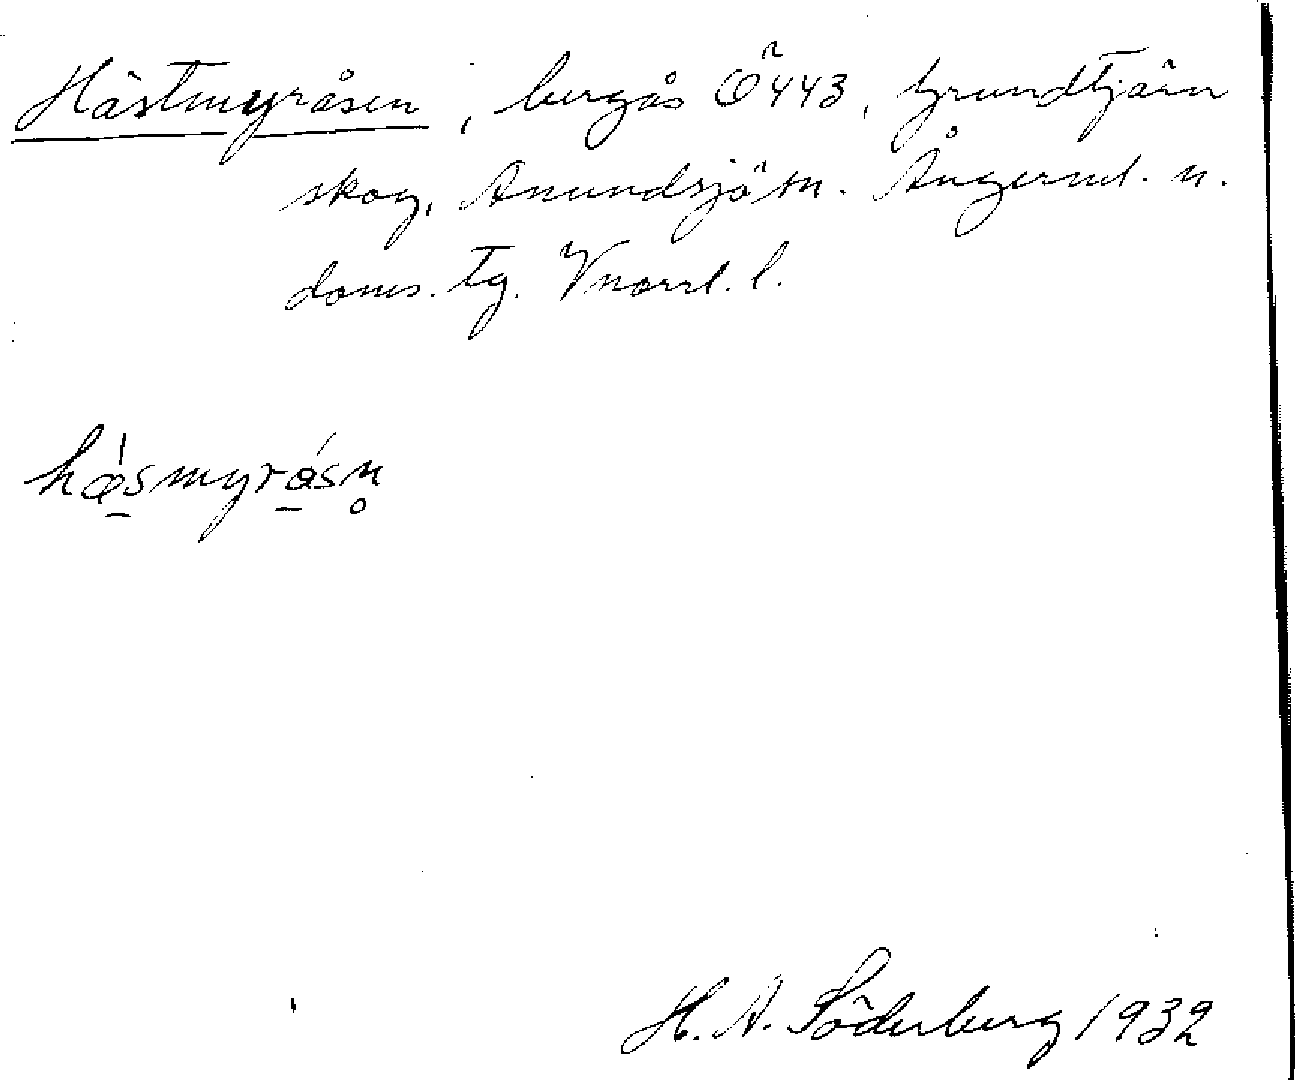 Hästmyråsen, bergås Ö443, Grundtjärn
skog, Anundsjö sn. Ångerml. n.
doms. tg. Vnorrl. l.
hǽ̱smyrǻ̱sn̥
H. A. Söderberg 1932